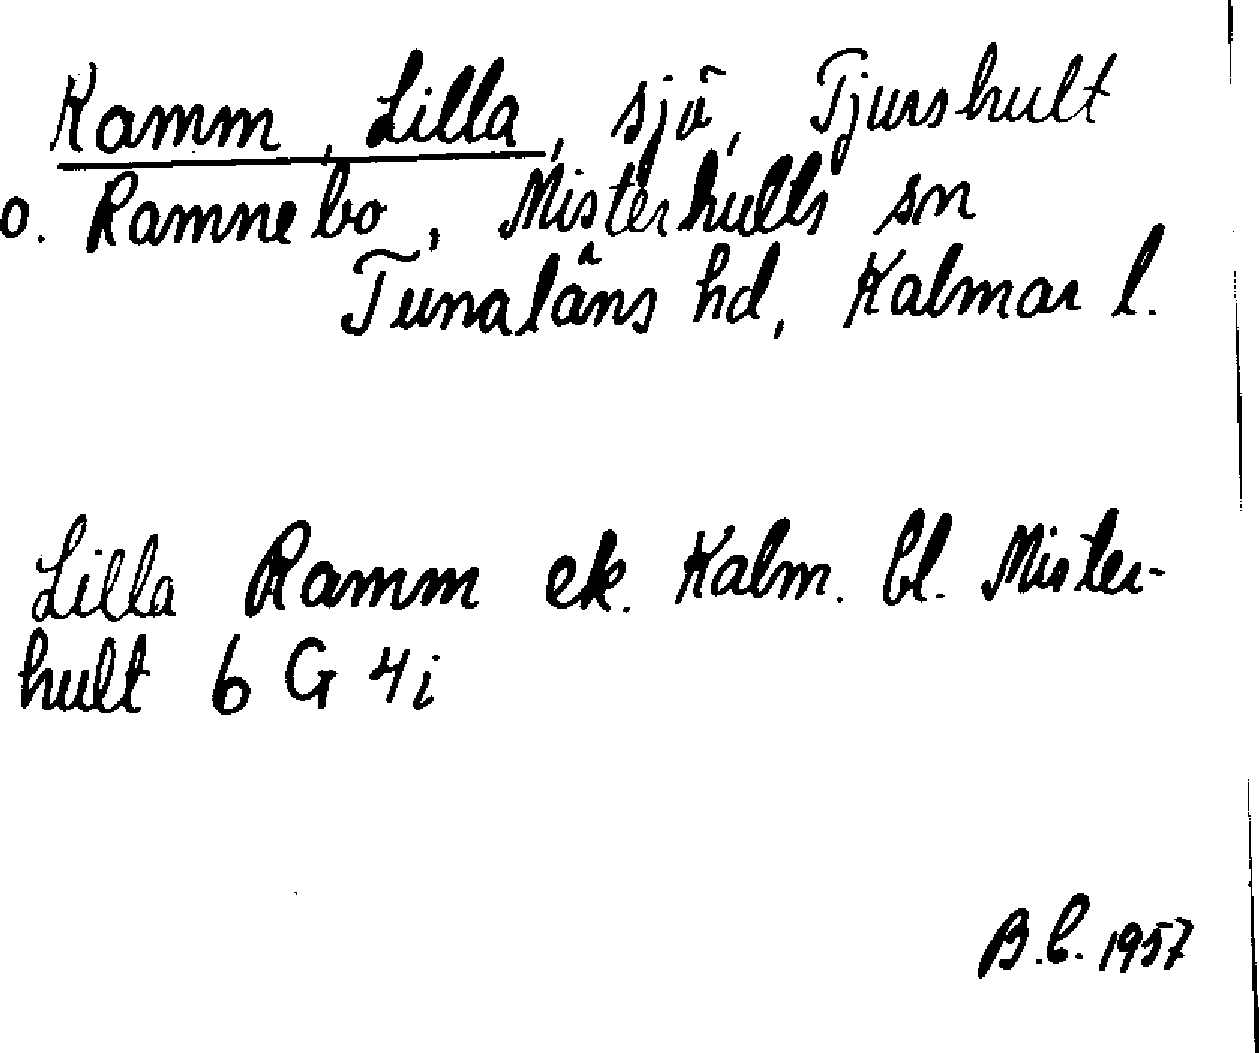 Ramm, Lilla, sjö, Tjurshult
o. Ramnebo, Misterhults sn
Tunaläns hd, Kalmar l.
Lilla Ramm ek. Kalm. bl. Mister-
hult 6 G 4i
B.C. 1957